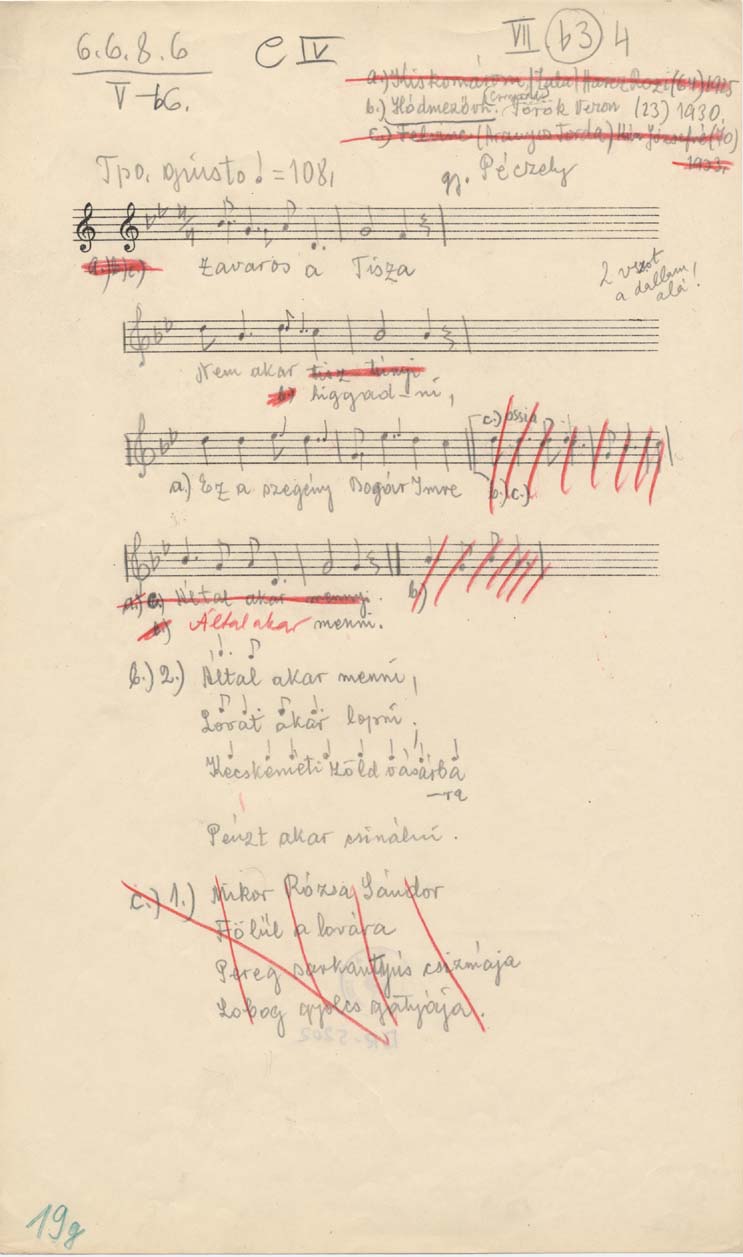 6.6.8.6
V-b6.
C IV
VII b3 4
a.) Kiskomárom (Zala) Rozi (64) 1925
b.) Hódmezővh. (Csongrád) Török Veron (23) 1930.
c.) Felvinc (Aranyos Torda) Józsefné (40)
1933.
Tpo. giusto ♩=108,
gy. Péczely
a.) b) c.)
Zavaros a Tisza
2 verset
a dallam
alá!
Nem akar tisz túnyi
b.) higgad-ni,
c.) ossia
a.) Ez a szegény Bogár Imre
b.) c.)
a.) c.) Által akar mennyi.
b.)
b.) Által akar menni.
b.) 2.) Által akar menni,
Lovat akar lopni;
Kecskeméti zöld vásárba
-ra
Pénzt akar csinálni.
c.) 1.) Mikor Rózsa Sándor
Fölül a lovára
Pereg sarkantyús csizmája
Lobog gyolcs gatyája.
BR-5202
19g